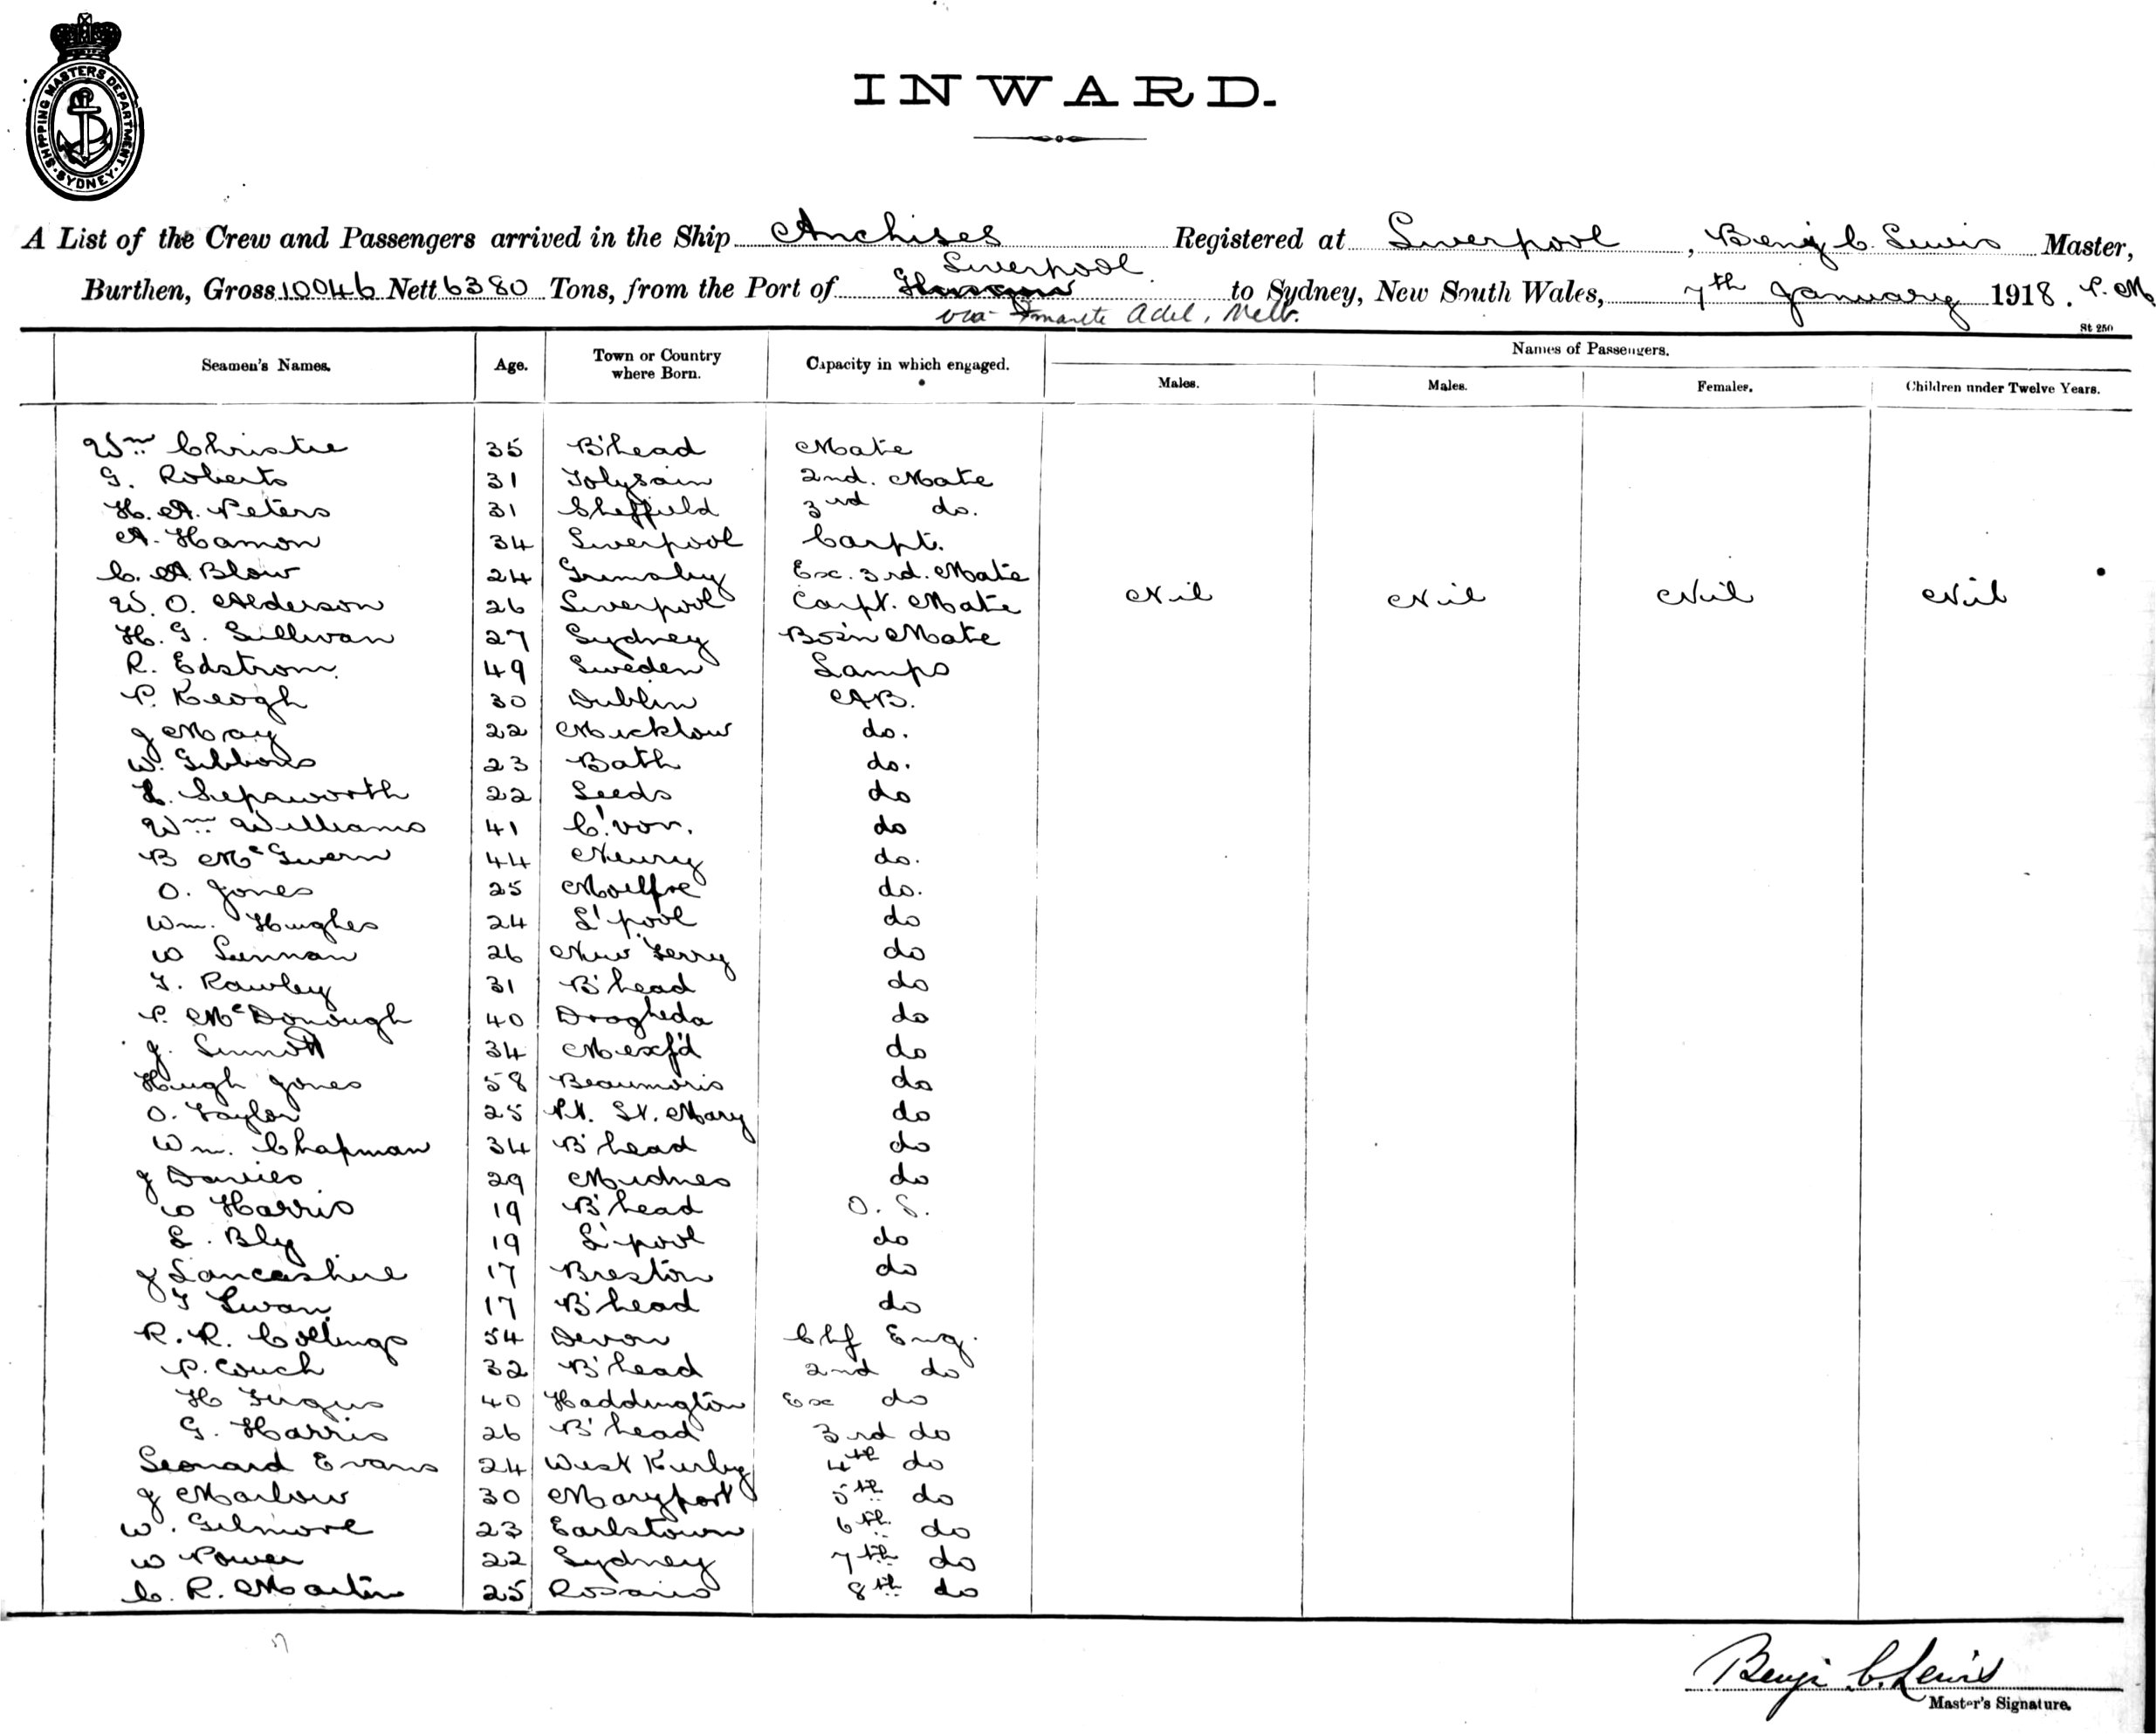 SHIPPING MASTERS DEPARTMENT. SYDNEY
INWARD.
A List of the Crew and Passengers arrived in the Ship Anchises Registered at Liverpool, Benj C. Lewis Master,
Liverpool
Burthen, Gross 10046 Nett 6380 Tons, from the Port of to Sydney, New South Wales, 7th January 1918. P.M
via Adel, Melb.
St 250
Seamen's Names. Age. Town or Country where Born. Capacity in which engaged. Names of Passengers.
Males. Males. Females. Children under Twelve Years.
Wm Christie 35 B'head Mate
G. Roberts 31 2nd. Mate
H. A. Peters 31 Sheffield 3rd do.
A. Hamon 34 Liverpool Carpt.
C. A. Blow 24 Grimsby Ex. 3rd. Mate
W. O. Alderson 26 Liverpool Carpt. Mate Nil Nil Nil Nil
H. G. Sullivan 27 Sydney Bos'n Mate
R. Edstrom 49 Sweden Lamps
P. Keogh 30 Dublin A.B.
J May 22 do.
W. Gibbons 23 Bath do.
L. Sepsworth 22 Leeds do
Wm Williams 41 C'von. do
B McGuern 44 Newry do.
O. Jones 25 Moelfre do.
Wm. Hughes 24 L'pool do
W Lennan 26 New Ferry do
T. Rawley 31 B'head do
P. McDonough 40 Drogheda do
J. Sinnott 34 Wexf'd do
Hugh Jones 58 Beaumoris do
O. Taylor 25 Pt. St. Mary do
Wm. Chapman 34 B'head do
J Davies 29 Widnes do
W Harris 19 B'head O. S.
L. Bly 19 L'pool do
J Lancashire 17 Preston do
T Swan 17 B'head do
R. R. Collings 54 Devon Chf Eng.
P. Couch 32 B'head 2nd do
H Fergus 40 Haddington Ex do
G. Harris 26 B'head 3rd do
Leonard Evans 24 West Kirby 4th do
J Marlow 30 Maryport 5th do
W. Gilmore 23 Earlstown 6th do
W Power 22 Sydney 7th do
C. R. Martin 25 Rosario 8th do
Benj. C. Lewis
Master's Signature.